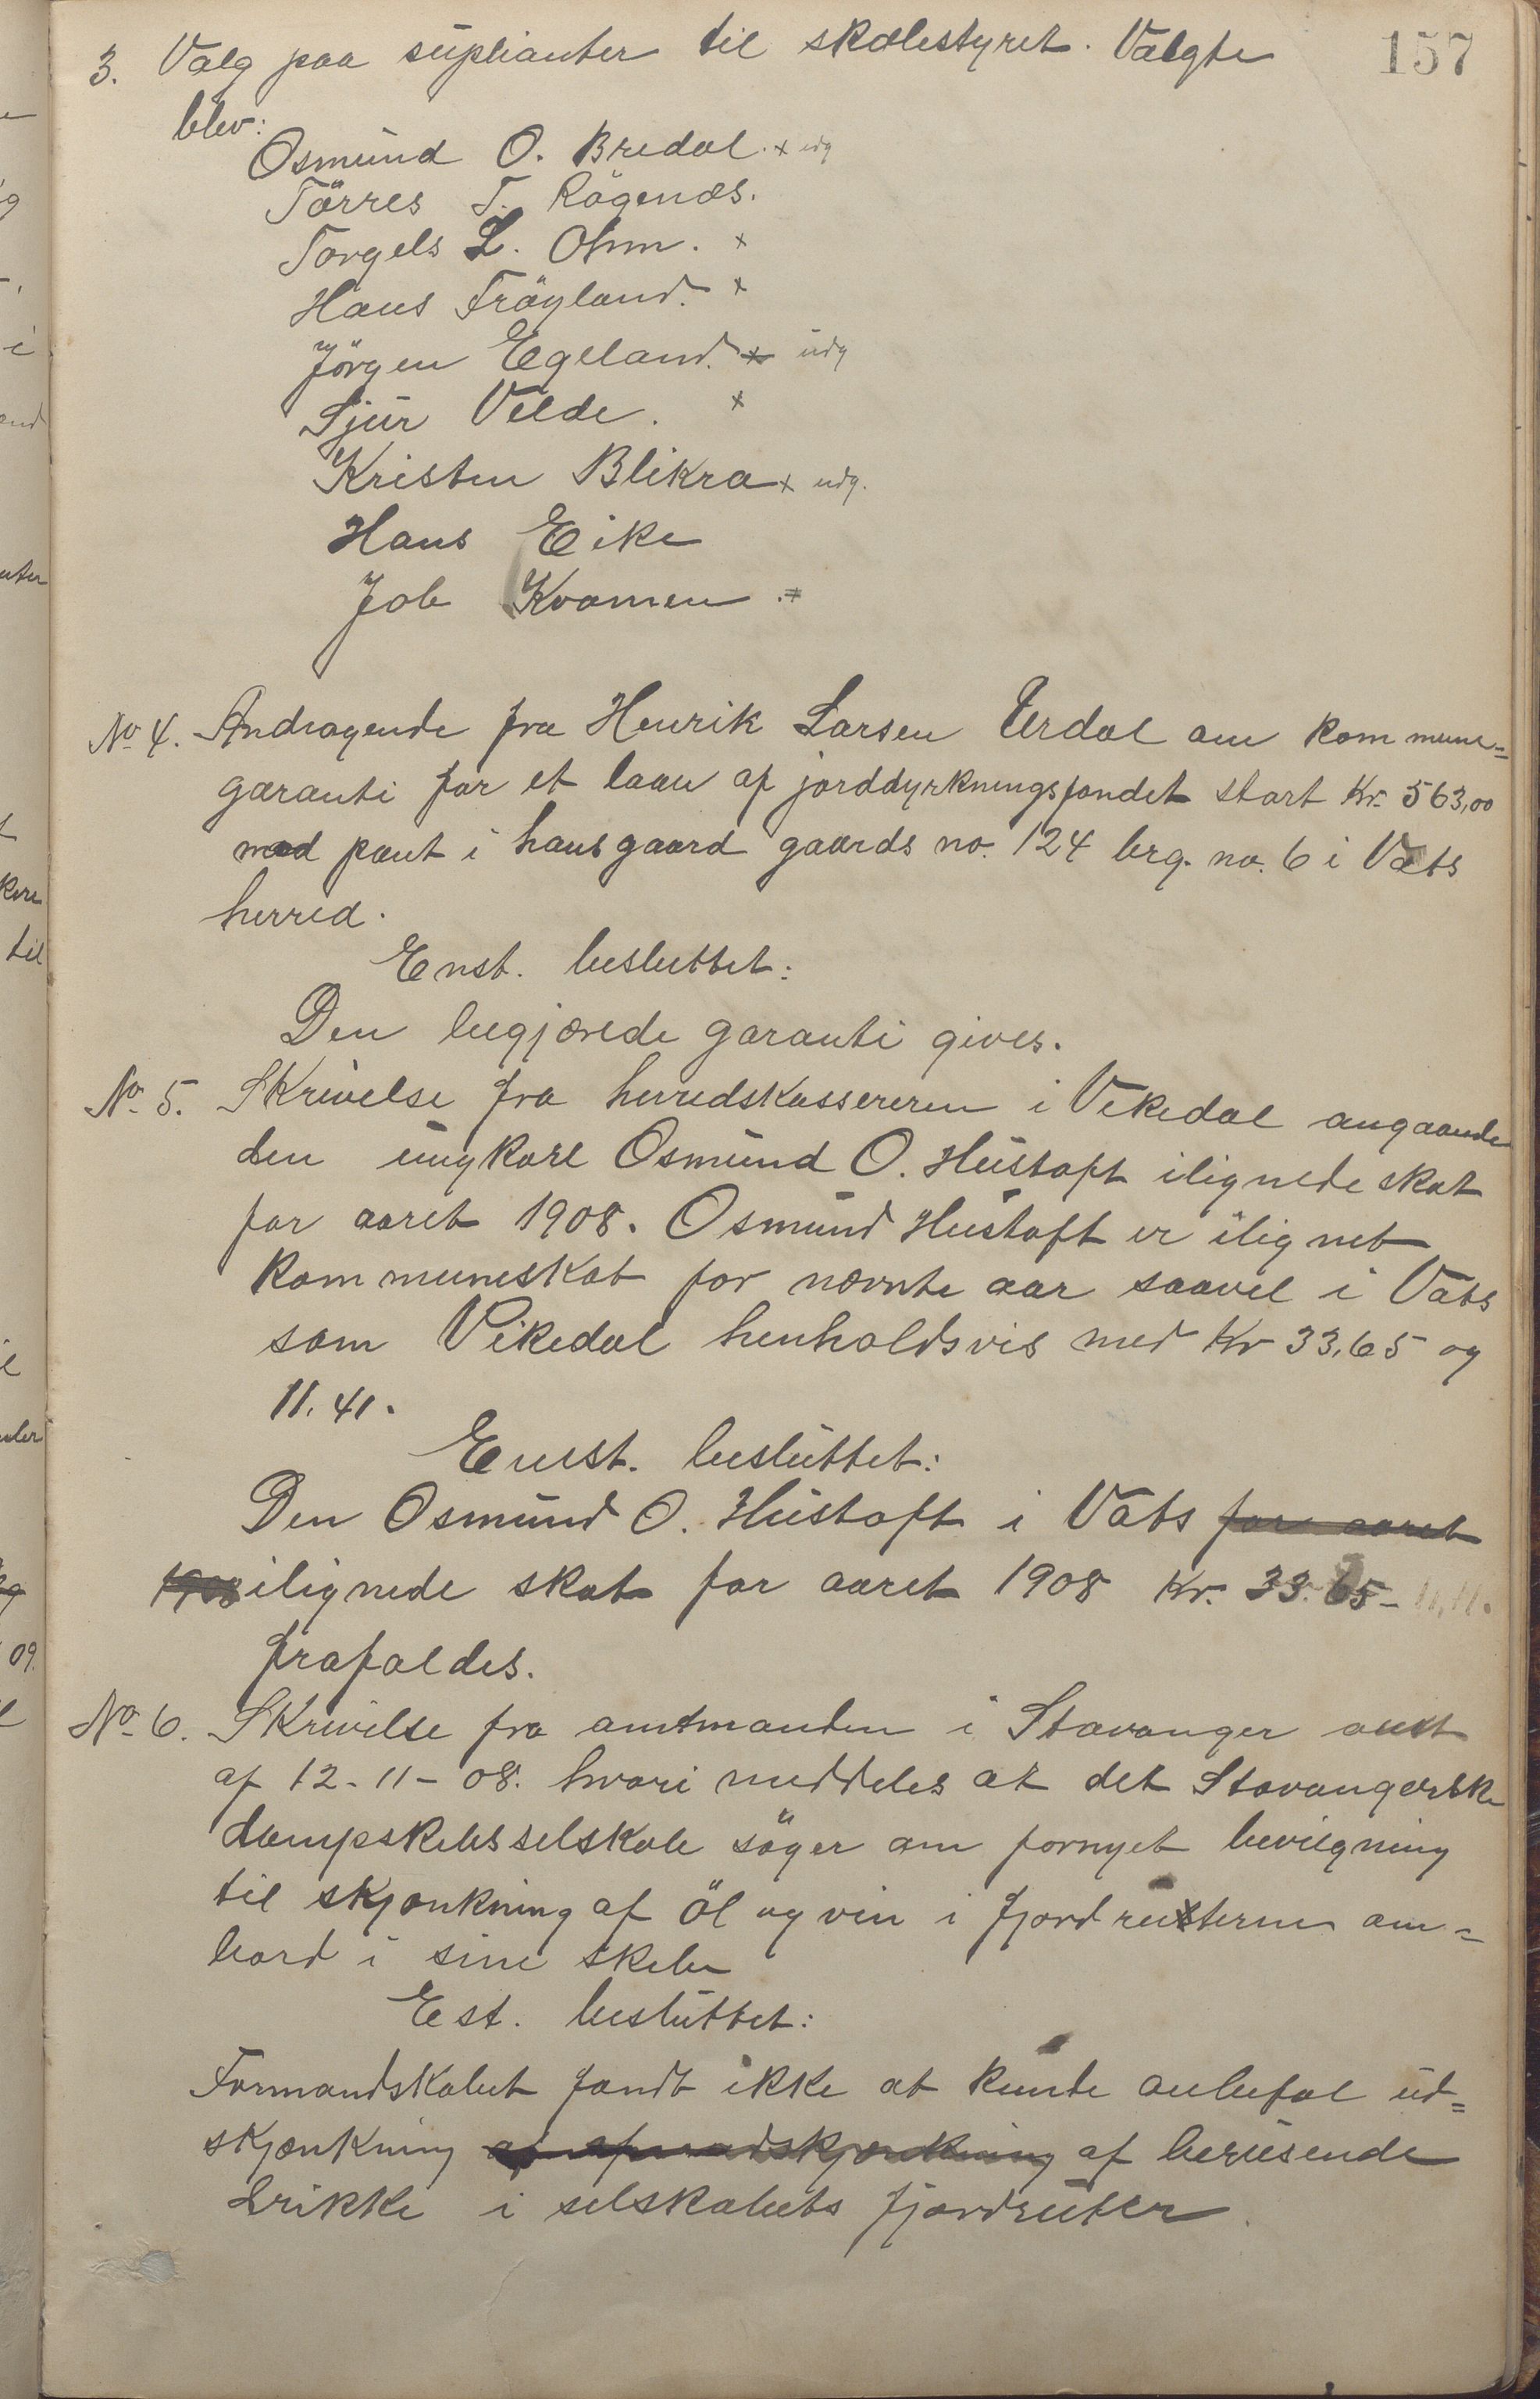 157
3. Valg paa suplianter til skolestyret. Valgte
blev:
Osmund O. Bredal. x udg
Törres T. Rögenæs.
Torgels L. Ohm. x
Hans Fröyland. x
Jörgen Egeland. x udg
Sjur Velde. x
Kristen Blikra x udg.
Hans Eike
Job Kvamen.
No 4. Andragende fra Henrik Larsen Urdal om kommune=
garanti for et laan af jorddyrkningsfondet stort Kr. 563,00
med pant i hans gaard gaards no. 124 brg. no. 6 i Vats
herred.
Enst. besluttet:
Den begjærede garanti gives.
No 5. Skrivelse fra herredskassereren i Vikedal angaaende
den ungkarl Osmund O. Hustoft ilignede skat
for aaret 1908. Osmund Hustoft er ilignet
kommuneskat for nævnte aar saavel i Vats
som Vikedal henholdsvis med Kr 33,65 og
11.41.
Enst. besluttet:
Den Osmund O. Hustoft i Vats for aaret
1908 ilignede skat for aaret 1908 Kr. 33.65 -
frafaldes.
No 6. Skrivelse fra amtmanden i Stavanger amt
af 12-11-08. hvori meddeles at det Stavangerske
dampskibsselskab söger om fornyet bevilgning
til skjænkning af öl og vin i fjordruterne om=
bord i sine skibe
Est. besluttet:
Formandskabet fandt ikke at kunde anbefal ud=
skjænkning af berusende
drikke i selskabets fjordruter.